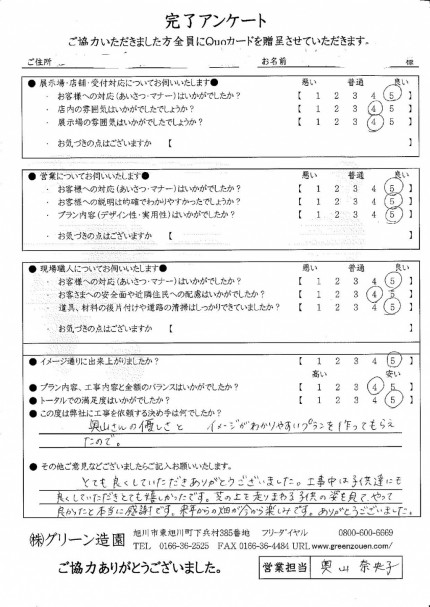 完了アンケート
ご協力いただきました方全員にQuoカードを贈呈させていただきます。
ご住所 お名前 様
● 展示場・店舗・受付対応についてお伺いいたします● 悪い 普通 良い
・ お客様への対応(あいさつ・マナー)はいかがでしたか? 【 1 2 3 4 5 】
・ 店内の雰囲気はいかがでしたでしょうか? 【 1 2 3 4 5 】
・ 展示場の雰囲気はいかがでしたか? 【 1 2 3 4 5 】
・ お気づきの点はございますか 【 】
● 営業についてお伺いいたします● 悪い 普通 良い
・ お客様への対応(あいさつ・マナー)はいかがでしたか? 【 1 2 3 4 5 】
・ お客様への説明は的確でわかりやすかったでしょうか? 【 1 2 3 4 5 】
・ プラン内容(デザイン性・実用性)はいかがでしたか? 【 1 2 3 4 5 】
・ お気づきの点はございますか 【 】
● 現場職人についてお伺いいたします● 悪い 普通 良い
・ お客様への対応(あいさつ・マナー)はいかがでしたか? 【 1 2 3 4 5 】
・ お客さまへの安全面や近隣住民への配慮はいかがでしたか? 【 1 2 3 4 5 】
・ 道具、材料の後片付けや道路の清掃はしっかりできていましたか? 【 1 2 3 4 5 】
・ お気づきの点はございますか 【 】
● イメージ通りに出来上がりましたか? 【 1 2 3 4 5 】
高い 安い
● プラン内容、工事内容と金額のバランスはいかがでしたか? 【 1 2 3 4 5 】
● トータルでの満足度はいかがでしたか? 【 1 2 3 4 5 】
● この度は弊社に工事を依頼する決め手は何でしたか?
奥山さんの優しさと イメージがわかりやすいプランを作ってもらえ
たので。
● その他ご意見などございましたらご記入お願いいたします。
とても良くしていただきありがとうございました。工事中は子供達にも
良くしていただきとても嬉しかったです。芝の上を走りまわる子供の姿を見て、やって
良かったと本当に感謝です。来年からの畑が今から楽しみです。ありがとうございました。
㈱グリーン造園 旭川市東旭川町下兵村385番地 フリーダイヤル 0800-600-6669
TEL 0166-36-2525 FAX 0166-36-4484 URL www.greenzouen.com/
ご協力ありがとうございました。 営業担当 奥山 奈央子